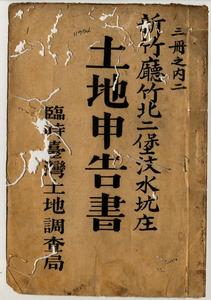 三冊之内二
新竹廳竹北二堡汶水坑庄
土地申告書
臨時臺灣土地調查局